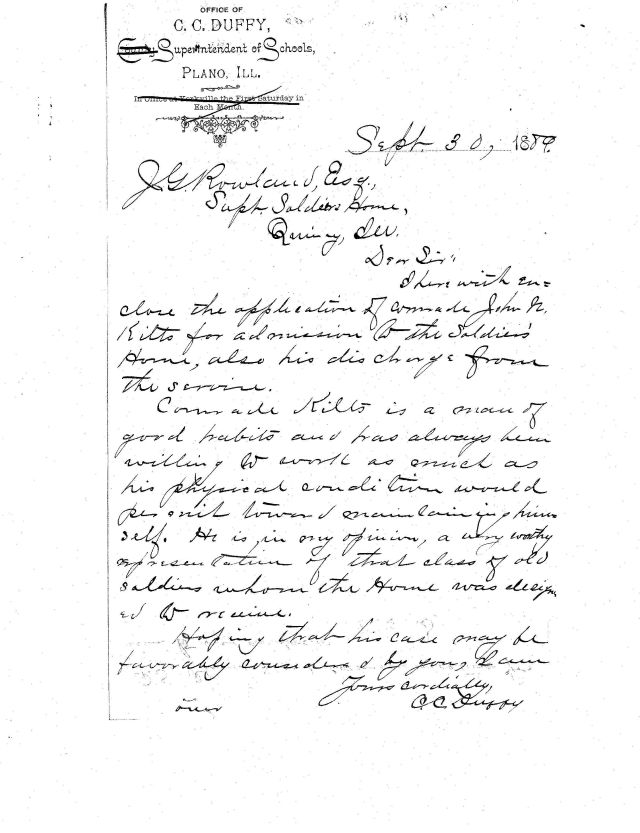 OFFICE OF
C. C. DUFFY,
County Superintendent of Schools,
PLANO, ILL.
In Office at Yorkville the First Saturday in
Each Month.
Sept. 30, 1889.
J.G. Rowland, Esq.,
Supt. Soldiers Home,
Quincy, Ill.
Dear Sir:
I herewith en=
close the application of comrade John N.
Kilts for admission to the Soldier's
Home, also his discharge from
the service.
Comrade Kilts is a man of
good habits and has always been
willing to work as much as
his physical condition would
permit toward maintaining him
self. He is, in my opinion, a very worthy
representation of that class of old
soldiers whom the Home was design
ed to receive.
Hoping that his case may be
favorably considered by you, I am
Yours cordially,
C.C. Duffy
over